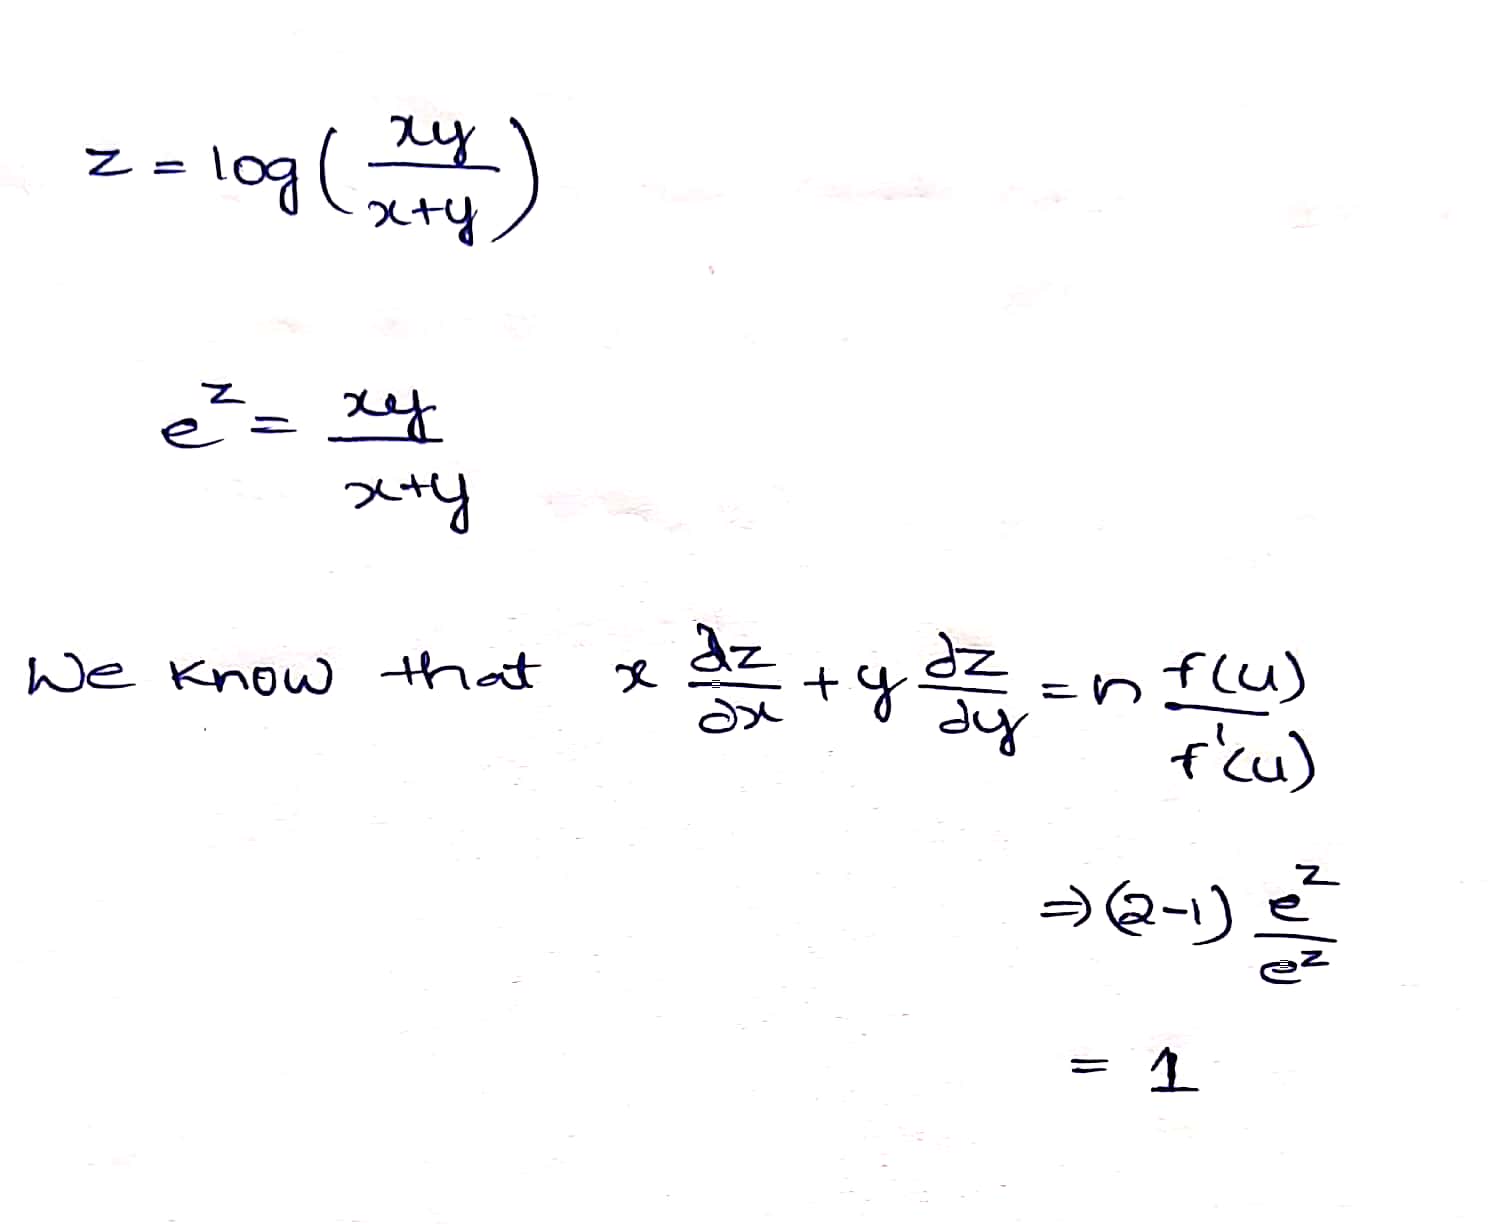 z = log(xy/x+y)
e^z = xy/x+y
We know that x ∂z/∂x + y ∂z/∂y = n f(u)/f'(u)
⇒ (2-1) e^z/e^z
= 1